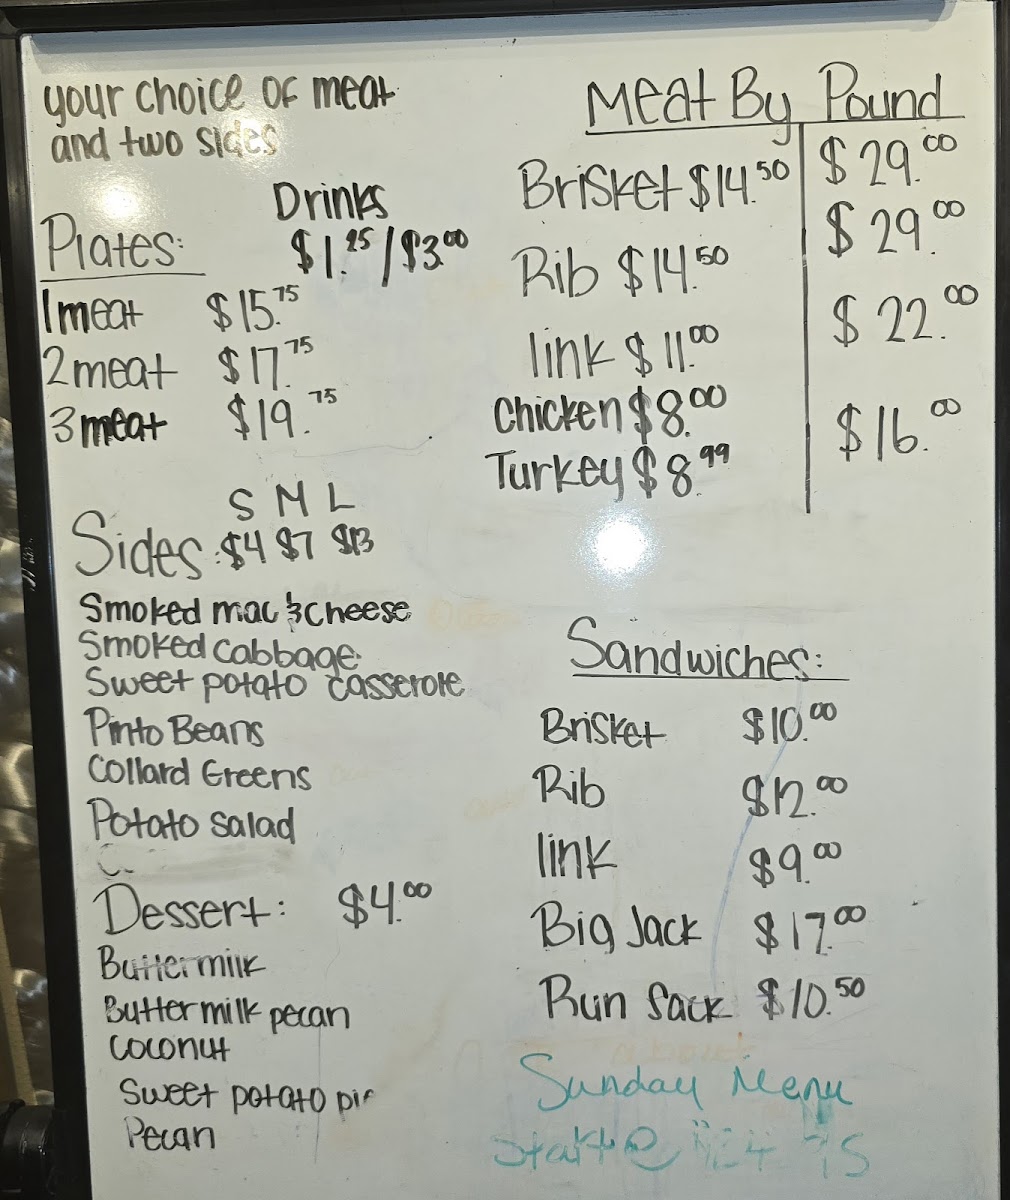 your choice of meat
and two sides
Drinks
$1.25/$3.00
Plates:
1 meat $15.75
2 meat $17.75
3 meat $19.75
S M L
Sides: $4 $7 $13
Smoked mac & cheese
Smoked cabbage
Sweet potato casserole
Pinto Beans
Collard Greens
Potato salad
Dessert: $4.00
Buttermilk
Buttermilk pecan
coconut
Sweet potato pie
Pecan
Meat By Pound
Brisket $14.50 $29.00
Rib $14.50 $29.00
link $11.00 $22.00
Chicken $8.00 $16.00
Turkey $8.99
Sandwiches:
Brisket $10.00
Rib $12.00
link $9.00
Big Jack $17.00
Run Sack $10.50
Sunday Menu